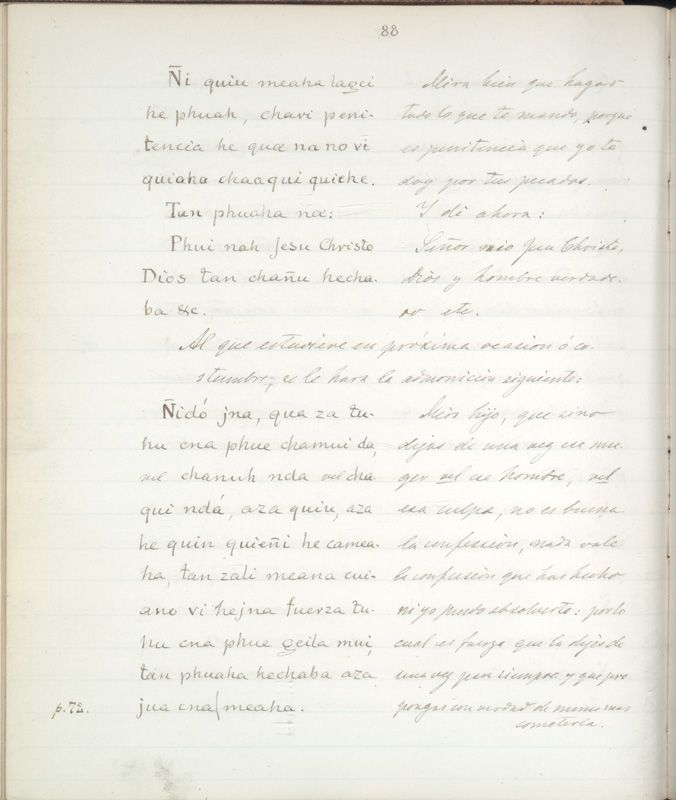 88
Ñi quiu meaha laqci
he phuah, chavi peni-
tencia he quæ na no vi
quiaha chaaqui quiche.
Tan phuaha næ:
Phui nah Jesu Christo
Dios tan chañu hecha-
ba &c.
Mira bien que hagas
todo lo que te mando, porque
es penitencia que yo te
doy por tus pecados.
Y di ahora:
Señor mio Jesu Christo,
Dios y hombre verdade-
ro etc.
Al que estuviere en próxima ocasion ó co-
stumbre, se le hara la admonicion siguiente:
Ñidó jna, qua za tu-
hu cna phue chamui da,
vel chanuh nda vel cha-
qui ndá, aza quiu, aza
he quin quieñi he camea-
ha, tan zali meana cui-
ano vi hejna fuerza tu-
hu cna phue qeila mui,
tan phuaha hechaba aza
jua cna meaha.
Mira hijo, que si no
dejas de una vez esa mu-
ger vel ese hombre, vel
esa culpa, no es buena
la confesion, nada vale
la confesion que has hecho,
ni yo puedo absolverte: por lo
cual es fuerza que la dejes de
una vez para siempre y que pro-
pongas con verdad de nunca mas
cometerla.
p. 72.